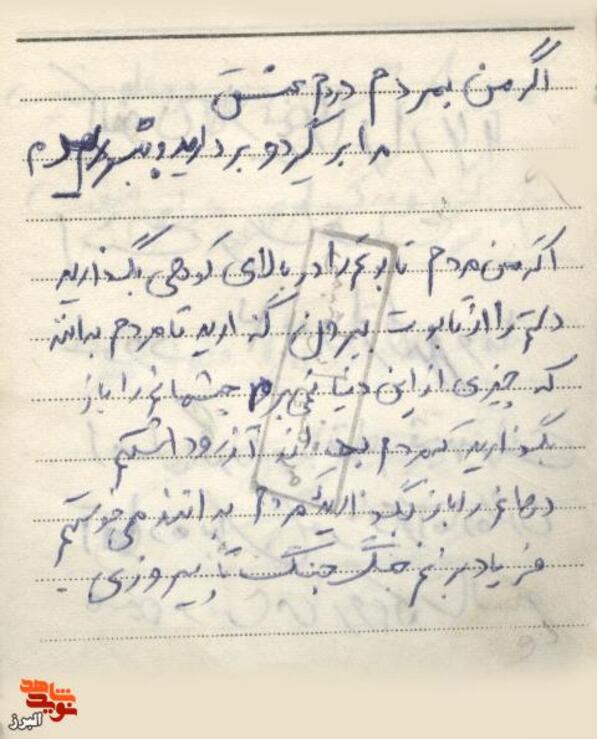 اگر من بمردم در دم عشق
مرا بر گیرد و بر دارید و
اگر من مردم تابوتم را در بالای کوهی بگذارید
دستم را از تابوت بیرون گذارید تا مردم بدانند
که چیزی از این دنیا نمی برم چشمانم را باز
بگذارید که مردم بدانند آرزو داشتم
دهانم را باز بگذارید مردم بدانند می خواستم
فریاد بزنم جنگ جنگ تا پیروزی -
نوید شاهد
البرز